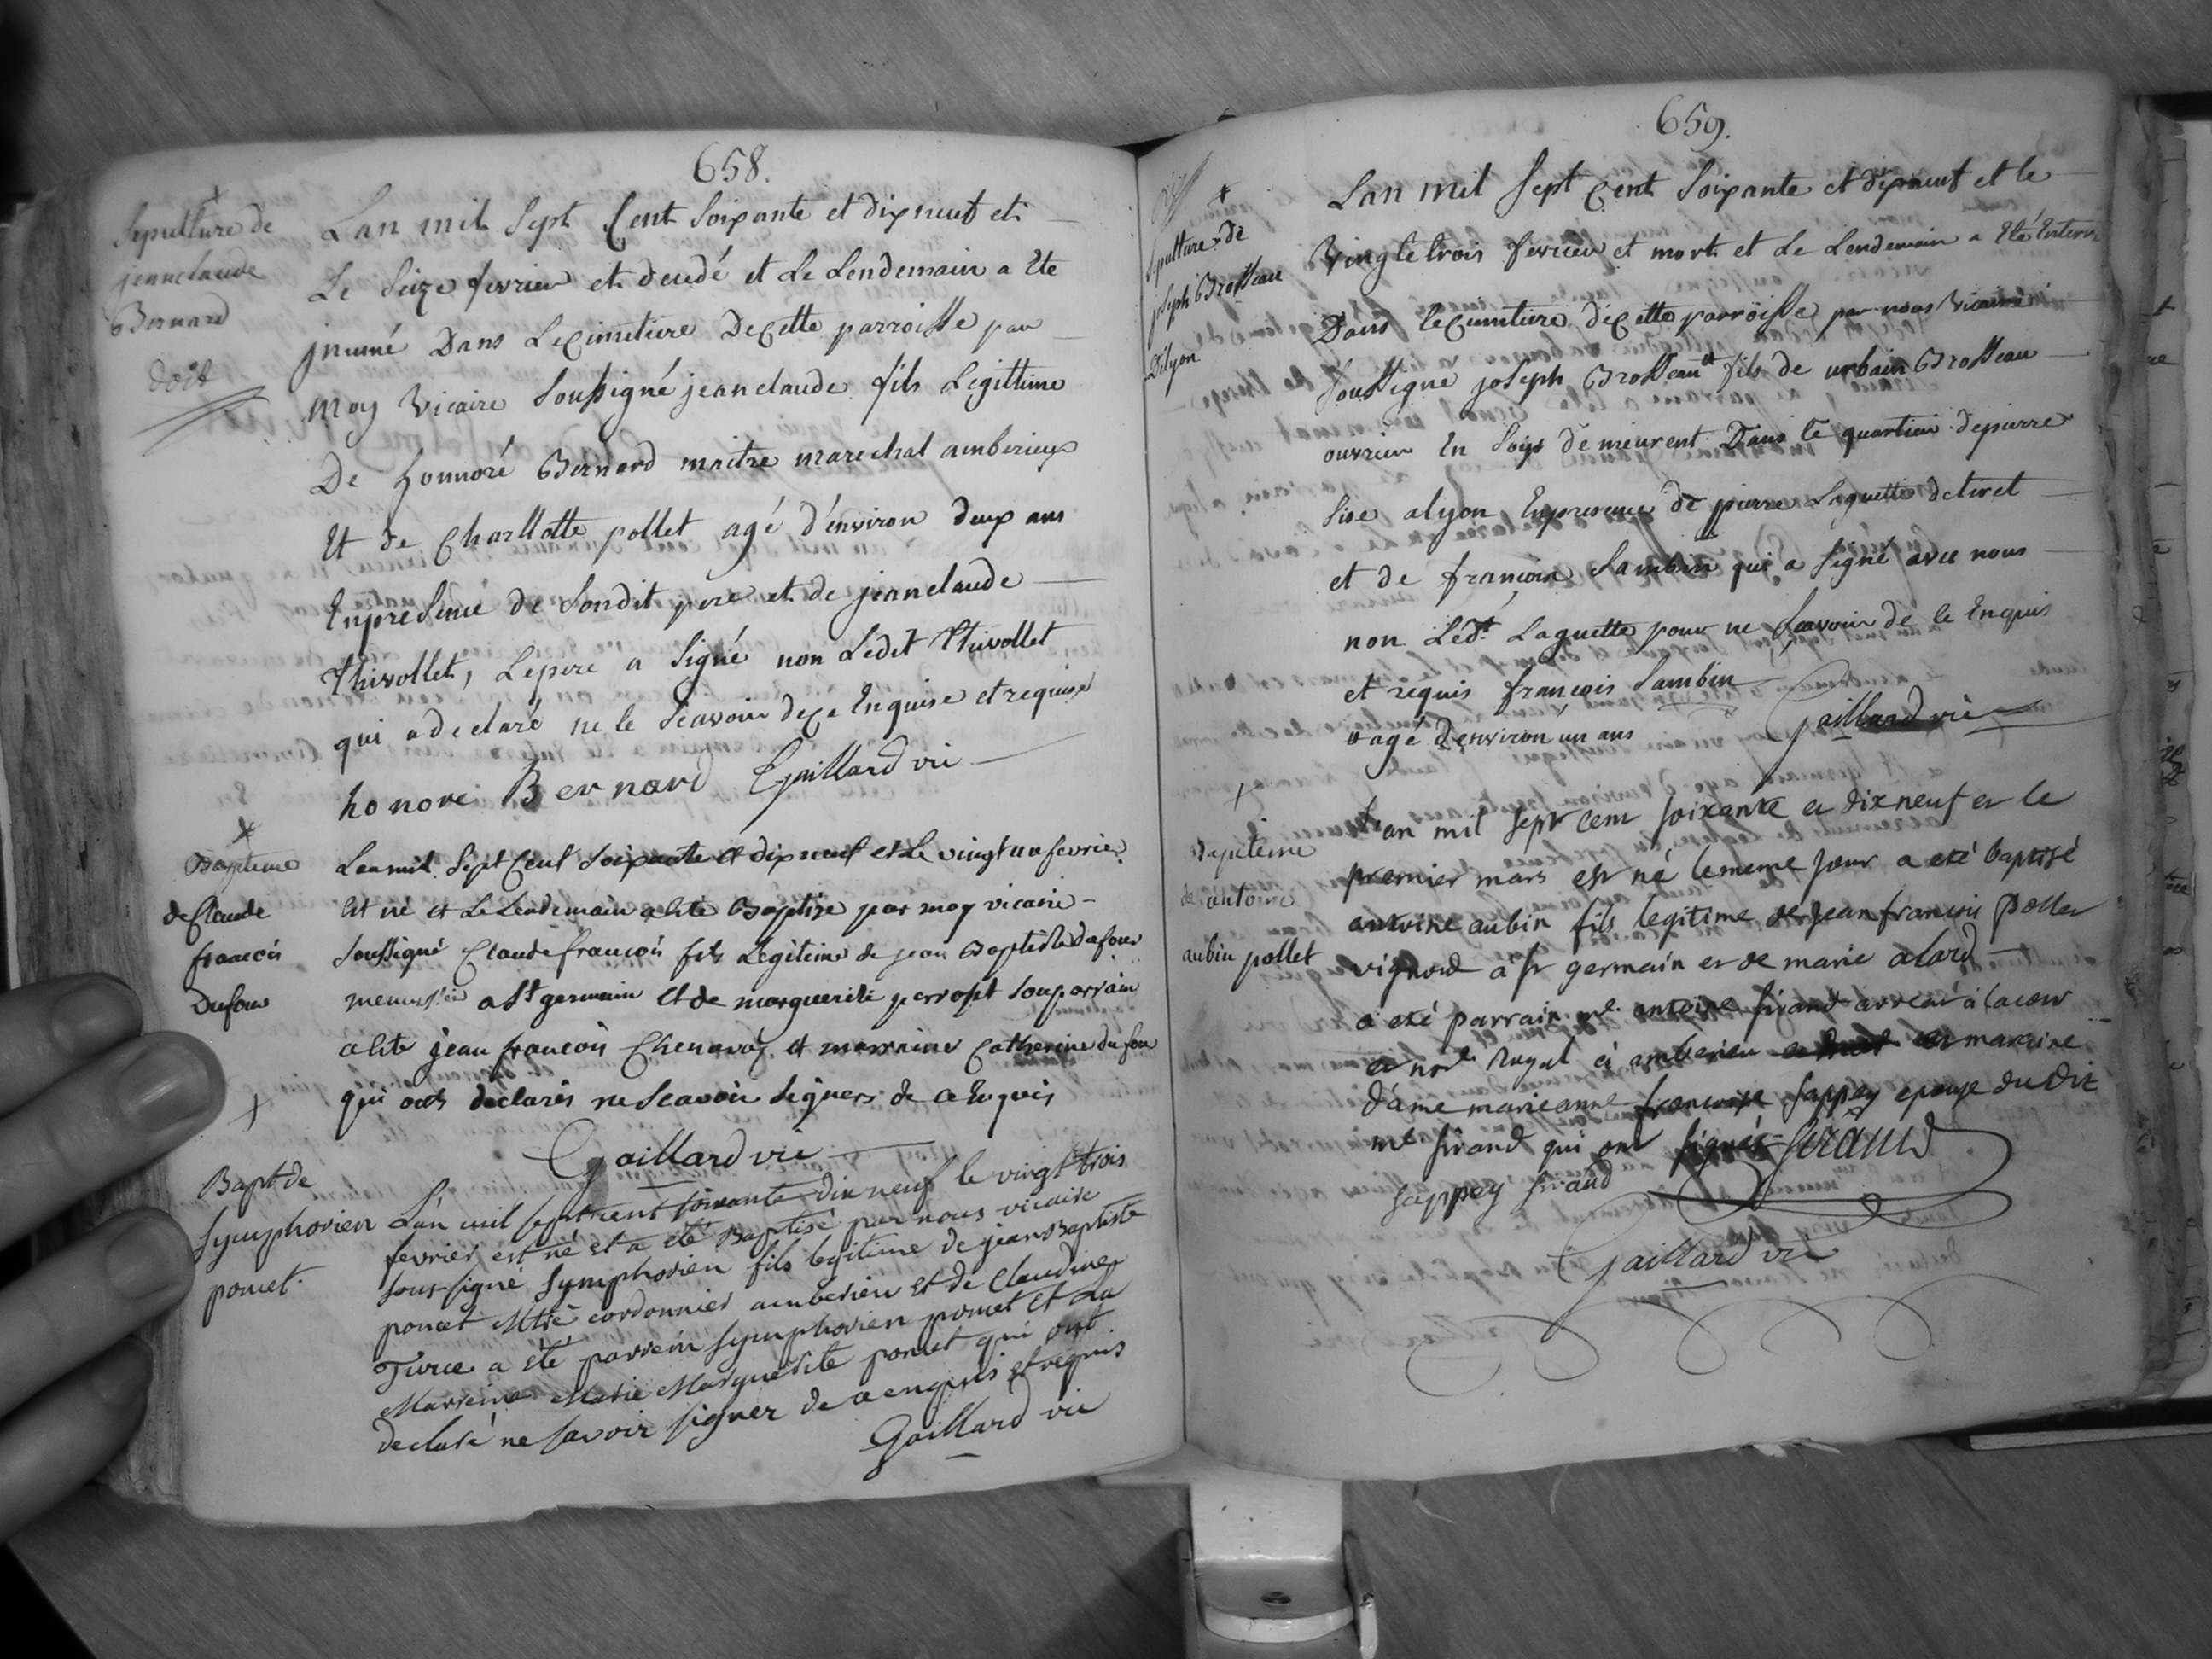 658.
Sepulture de
jeanclaude
Bernard
doit
Lan mil Sept Cent Soixante et dixneuf et
Le Seize fevrier et decedé et Le Lendemain a Ete
jnumé Dans Le Cimitiere De Cette parroisse par
moy Vicaire Soussigné jeanclaude fils Legittime
De honnoré Bernard maitre marechal amberieux
Et de Charllotte pollet agé d'environ deux ans
Enpresence de Sondit pere et de jeanclaude
Thivollet, Lepere a Signé non Ledit Thivollet
qui a declaré ne le Scavoir de Ce Enquise et requise
honore Bernard Gaillard vic
Bapteme
de Claude
francois
Dufour
Lan mil Sept Cent Soixante et dix neuf et Le vingt un fevrier
Est né et Le Lendemain a ete Baptize par moy vicaire
Soussigné Claude francois fils Legitime de jean Baptiste dufour
menusier a St germain et de marguerite perropt Son parrain
a ete jean francois Chenavaz et marraine Catherine dufour
qui onts declarés ne Scavoir Signers de ce Enquis
Gaillard vic
Bapt de
Symphorien
poncet.
L'an mil sept cent soixante dix neuf le vingt trois
fevrier est né et a eté Baptisé par nous vicaire
sous-signé Symphorien fils legitime de jean Baptiste
poncet Mtre cordonnier amberieu et de Claudine
Turce a eté parrein symphorien poncet et La
Marreine Marie Marguerite poncet qui ont
declaré ne savoir signer de ce enquis et requis
Gaillard vic
659.
sepulture de
joseph Brosseau
De lyon
Lan mil Sept Cent Soixante et dixneuf et le
Vingt et trois fevrier et mort et Le Lendemain a Eté Enterré
Dans le Cimitiere de Cette parroisse par nous Vicaire
Soussigné joseph Brosseau fils de urbain Brosseau
ouvrier En Soye demeurent Dans le quartier de pierre
Sise a lyon Enpresence de pierre Laguette de tiret
et de francois Sambin qui a Signé avec nous
non Ledt Laguette pour ne Scavoir de ce Enquis
et requis francois Sambin
agé d'environ un ans Gaillard vic
Bapteme
de antoine
aubin pollet
L'an mil sept cent soixante et dixneuf et le
premier mars est né le meme jour a eté baptisé
antoine aubin fils legitime de jean francois Pollet
vigneron a st germain et de marie alard
a eté parrain me antoine sirand avocat à la cour
et nore Royal a amberieu et maraine
dáme marie anne francoise sappey epouse du dit
me sirand qui ont signés Sirand
sappey sirand
Gaillard vic